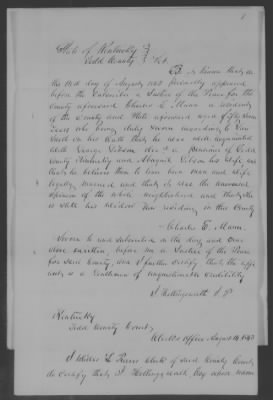 State of Kentucky }
Todd County } Sct.
Be it known that on
the 14th day of August 1843 personally appeared
before the Subscriber a Justice of the Peace for the
County aforesaid Charles E. Mann a resident
of the County and State aforesaid aged fifty
years who being duly sworn according to law
saith on his oath that he was well acquainted
with George Gibson a pensioner of Todd
County Kentucky and Abagail Gibson his wife and
that he believes them to have been man and wife
legally married and that it was the universal
opinion of the whole neighborhood and that she
is still his widow Now residing in this County
Charles E. Mann.
Sworn to and subscribed on the day and year
above written, before me a Justice of the Peace
for said County, and I further certify that the
is a Gentleman of unquestionable Credibility
J. Hollingsworth J. P.
Kentucky
Todd County County
Clerks office August 14 1843
I Willis L Reeves Clerk of said County Court
do certify that J. Hollingsworth Esq whose name